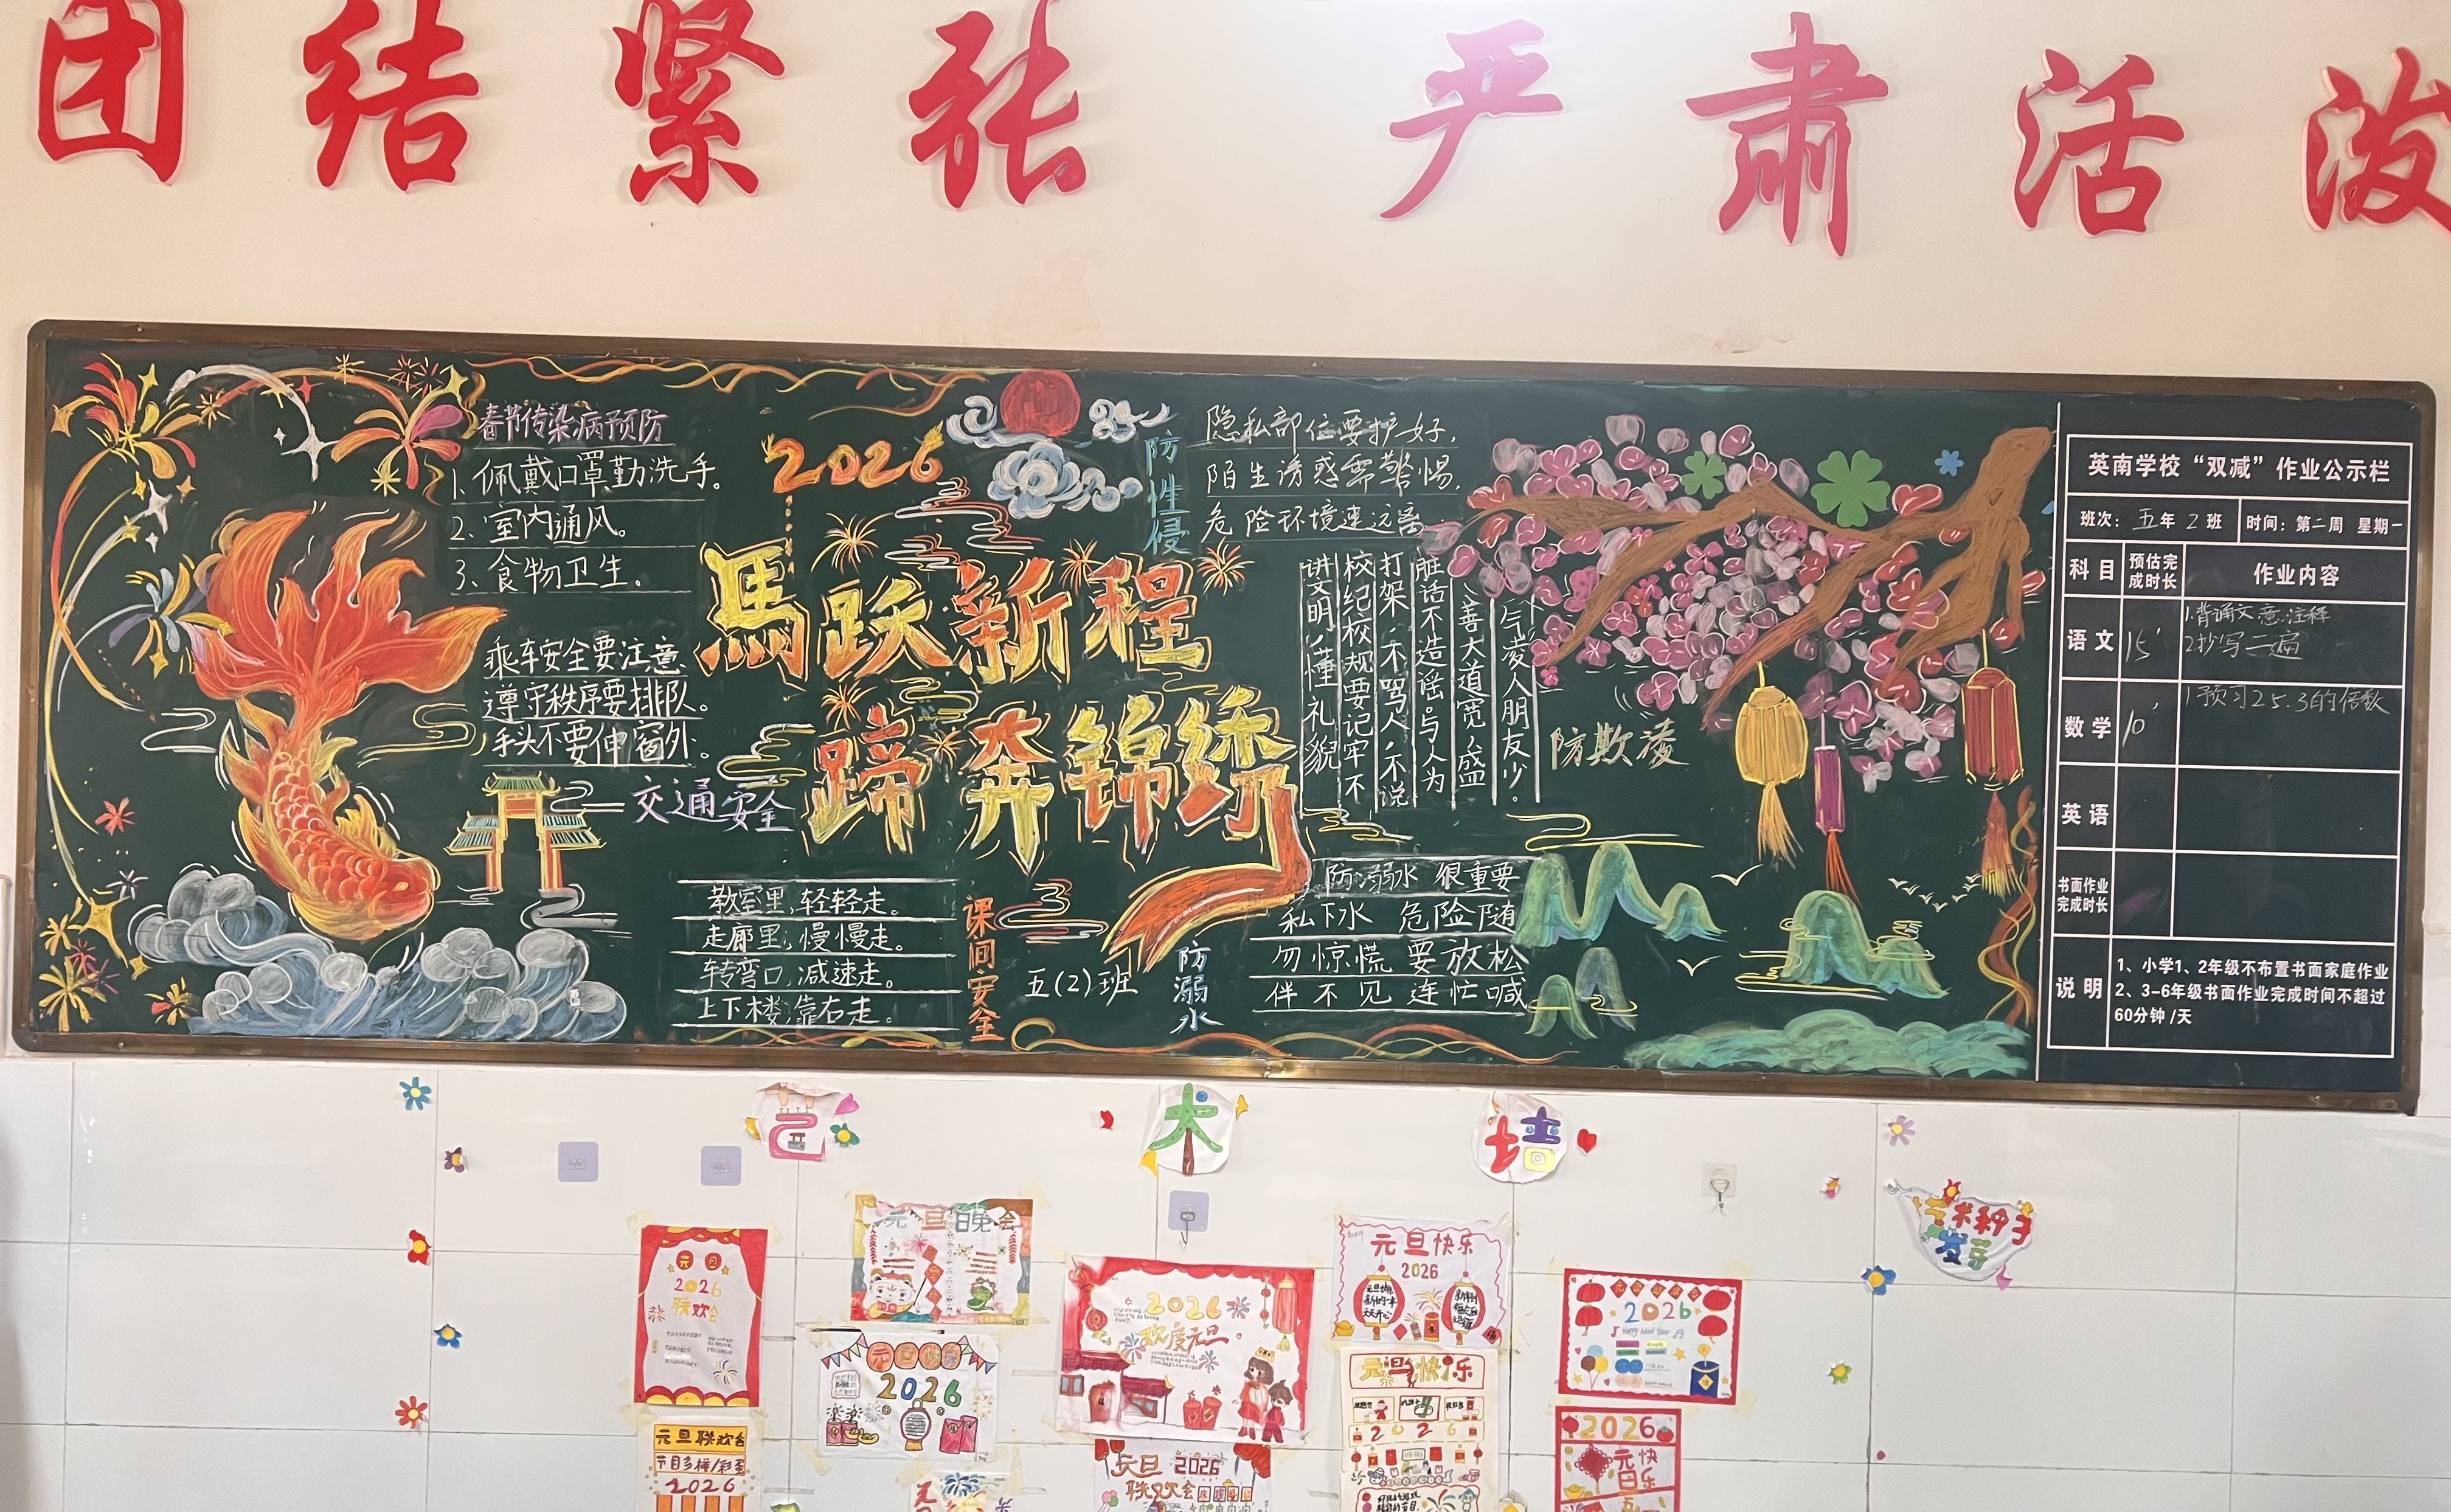 团结紧张 严肃活泼
春节传染病预防
1、佩戴口罩勤洗手。
2、室内通风。
3、食物卫生。
乘车安全要注意
遵守秩序要排队。
手头不要伸窗外。
交通安全
2026
馬跃新程
蹄奔锦绣
教室里,轻轻走。
走廊里,慢慢走。
转弯口,减速走。
上下楼,靠右走。
课间安全
五(2)班
防性侵
隐私部位要护好,
陌生诱惑需警惕,
危险环境速远离
讲文明、懂礼貌
校纪校规要记牢不
打架、不骂人、不说
脏话不造谣。与人为
善大道宽、盛
气凌人朋友少。
防欺凌
防溺水 很重要
私下水 危险随
勿惊慌 要放松
伴不见 连忙喊
防溺水
英南学校“双减”作业公示栏
班次：五年2班 时间：第二周 星期一
科目 预估完成时长 作业内容
语文 15' 1.背诵文意.注释
2.抄写二遍
数学 10' 1预习25.3的倍数
英语
书面作业完成时长
说明 1、小学1、2年级不布置书面家庭作业
2、3-6年级书面作业完成时间不超过
60分钟/天
艺术种子
发芽
元旦
2026
联欢会
元旦晚会
元旦快乐
2026
2026
欢度元旦
元旦快乐
2026
2026
Happy New Year
元旦快乐
2026
元旦联欢会
节目多样/彩蛋
2026
元旦 2026
联欢会
2026
元旦快乐